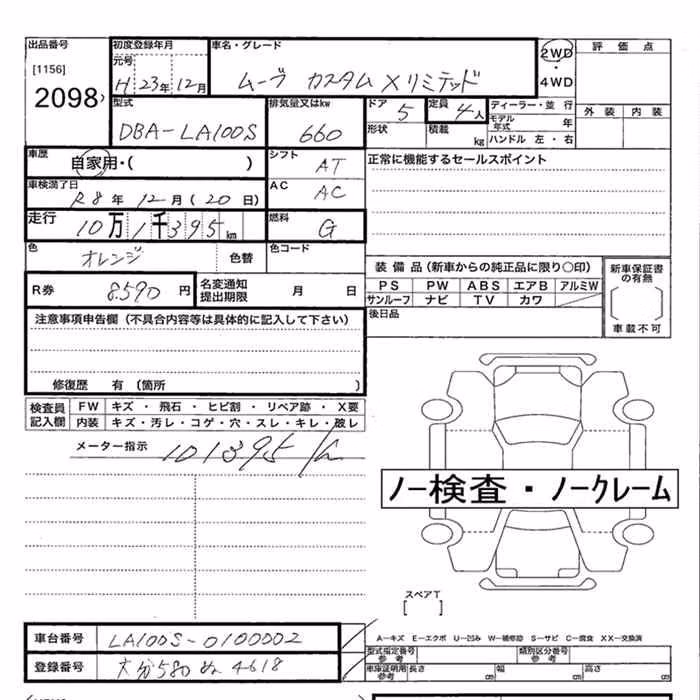 出品番号
[1156]
2098
初度登録年月
元号
H 23年 12月
車名・グレード
ムーブ カスタム Xリミテッド
2WD
・
4WD
評価点
外装 内装
型式
DBA-LA100S
排気量又はkw
660
ドア 5
形状
定員 4人
積載 kg
ディーラー・並行
モデル年式 年
ハンドル 左・右
車歴
自家用・( )
シフト
AT
正常に機能するセールスポイント
車検満了日
R8年 12月(20日)
AC
AC
走行
10万1千395km
燃料
G
色
オレンジ
色替
色コード
R券 8590円
名変通知
提出期限
月 日
装備品(新車からの純正品に限り○印)
PS PW ABS エアB アルミW
サンルーフ ナビ TV カワ
後日品
新車保証書
の有無
車載不可
注意事項申告欄(不具合内容等は具体的に記入して下さい)
修復歴 有〔箇所 〕
検査員
記入欄
FW キズ・飛石・ヒビ割・リペア跡・X要
内装 キズ・汚レ・コゲ・穴・スレ・キレ・破レ
メーター指示
101395
ノー検査・ノークレーム
スペアT
[ ]
車台番号 LA100S-0100002
登録番号 大分580 4618
A-キズ E-エクボ U-凹み W-補修跡 S-サビ C-腐食 XX-交換済
型式指定番号
参考
類別区分番号
参考
車庫証明用
参考
長さ 幅 高さ